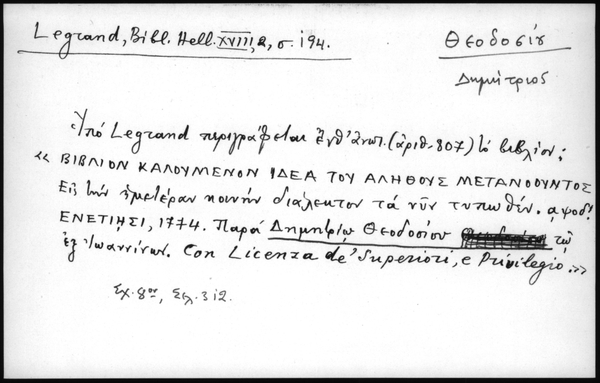 Legrand, Bibl. Hell. XVIII, 2, σ. 194.
Θεοδοσίου
Δημήτριος
Ὑπό Legrand περιγράφεται ἐνθ' ἀνωτ. (ἀριθ. 807) τό βιβλίον:
« ΒΙΒΛΙΟΝ ΚΑΛΟΥΜΕΝΟΝ ΙΔΕΑ ΤΟΥ ΑΛΗΘΟΥΣ ΜΕΤΑΝΟΟΥΝΤΟΣ
Εἰς τήν ἡμετέραν κοινήν διάλεκτον τά νῦν τυπωθέν. αψοδ'.
ΕΝΕΤΙΗΣΙ, 1774. Παρά Δημητρίῳ Θεοδοσίου τῷ
ἐξ Ἰωαννίνων. Con Licenza de' Superiori, e Privilegio.»
Σχ. 8ον, Σελ. 312.